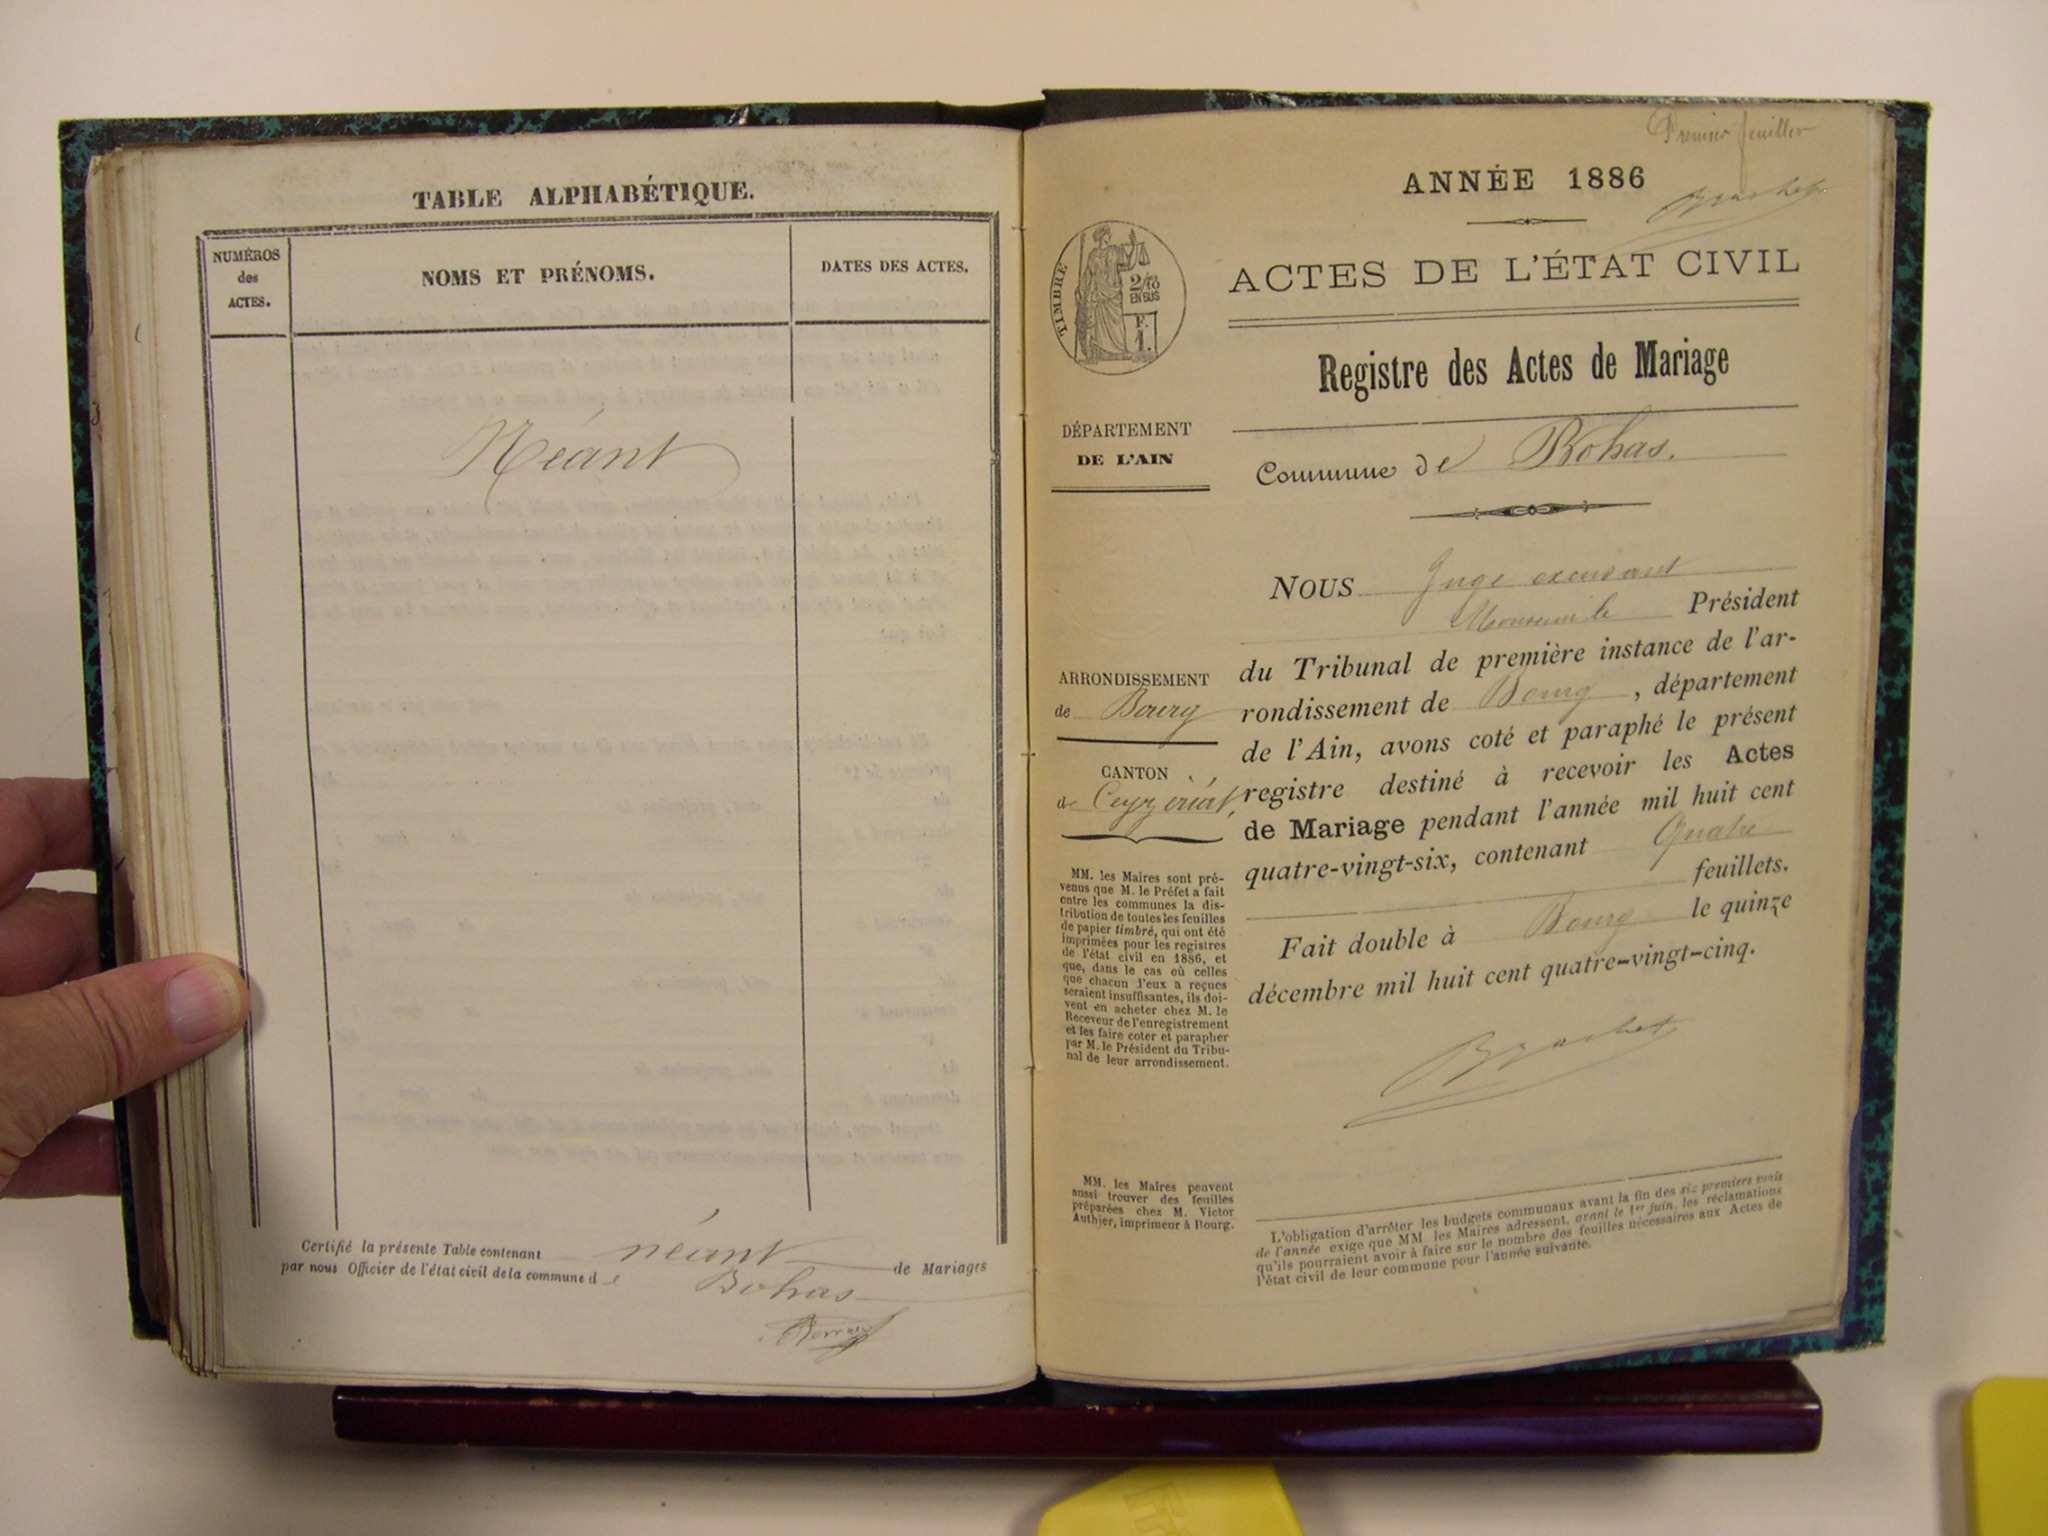 TABLE ALPHABÉTIQUE.
NUMÉROS
des
ACTES.
NOMS ET PRÉNOMS.
DATES DES ACTES.
Néant
Certifié la présente Table contenant néant de Mariages
par nous Officier de l'état civil de la commune de Bohas
Premier feuillet
Brachet
ANNÉE 1886
ACTES DE L'ÉTAT CIVIL
TIMBRE
2/10
EN SUS
F.
1.
Registre des Actes de Mariage
DÉPARTEMENT
DE L'AIN
Commune de Bohas.
NOUS Juge
Monsieur le Président
du Tribunal de première instance de l'ar-
rondissement de Bourg, département
de l'Ain, avons coté et paraphé le présent
registre destiné à recevoir les Actes
de Mariage pendant l'année mil huit cent
quatre-vingt-six, contenant Quatre
feuillets.
Fait double à Bourg le quinze
décembre mil huit cent quatre-vingt-cinq.
Brachet
ARRONDISSEMENT
de Bourg
CANTON
de Ceyzériat,
MM. les Maires sont pré-
venus que M. le Préfet a fait
entre les communes la dis-
tribution de toutes les feuilles
de papier timbré, qui ont été
imprimées pour les registres
de l'état civil en 1886, et
que, dans le cas où celles
que chacun d'eux a reçues
seraient insuffisantes, ils doi-
vent en acheter chez M. le
Receveur de l'enregistrement
et les faire coter et parapher
par M. le Président du Tribu-
nal de leur arrondissement.
MM. les Maires peuvent
aussi trouver des feuilles
préparées chez M. Victor
Authier, imprimeur à Bourg.
L'obligation d'arrêter les budgets communaux avant la fin des six premiers mois
de l'année exige que MM les Maires adressent, avant le 1er juin, les réclamations
qu'ils pourraient avoir à faire sur le nombre des feuilles nécessaires aux Actes de
l'état civil de leur commune pour l'année suivante.